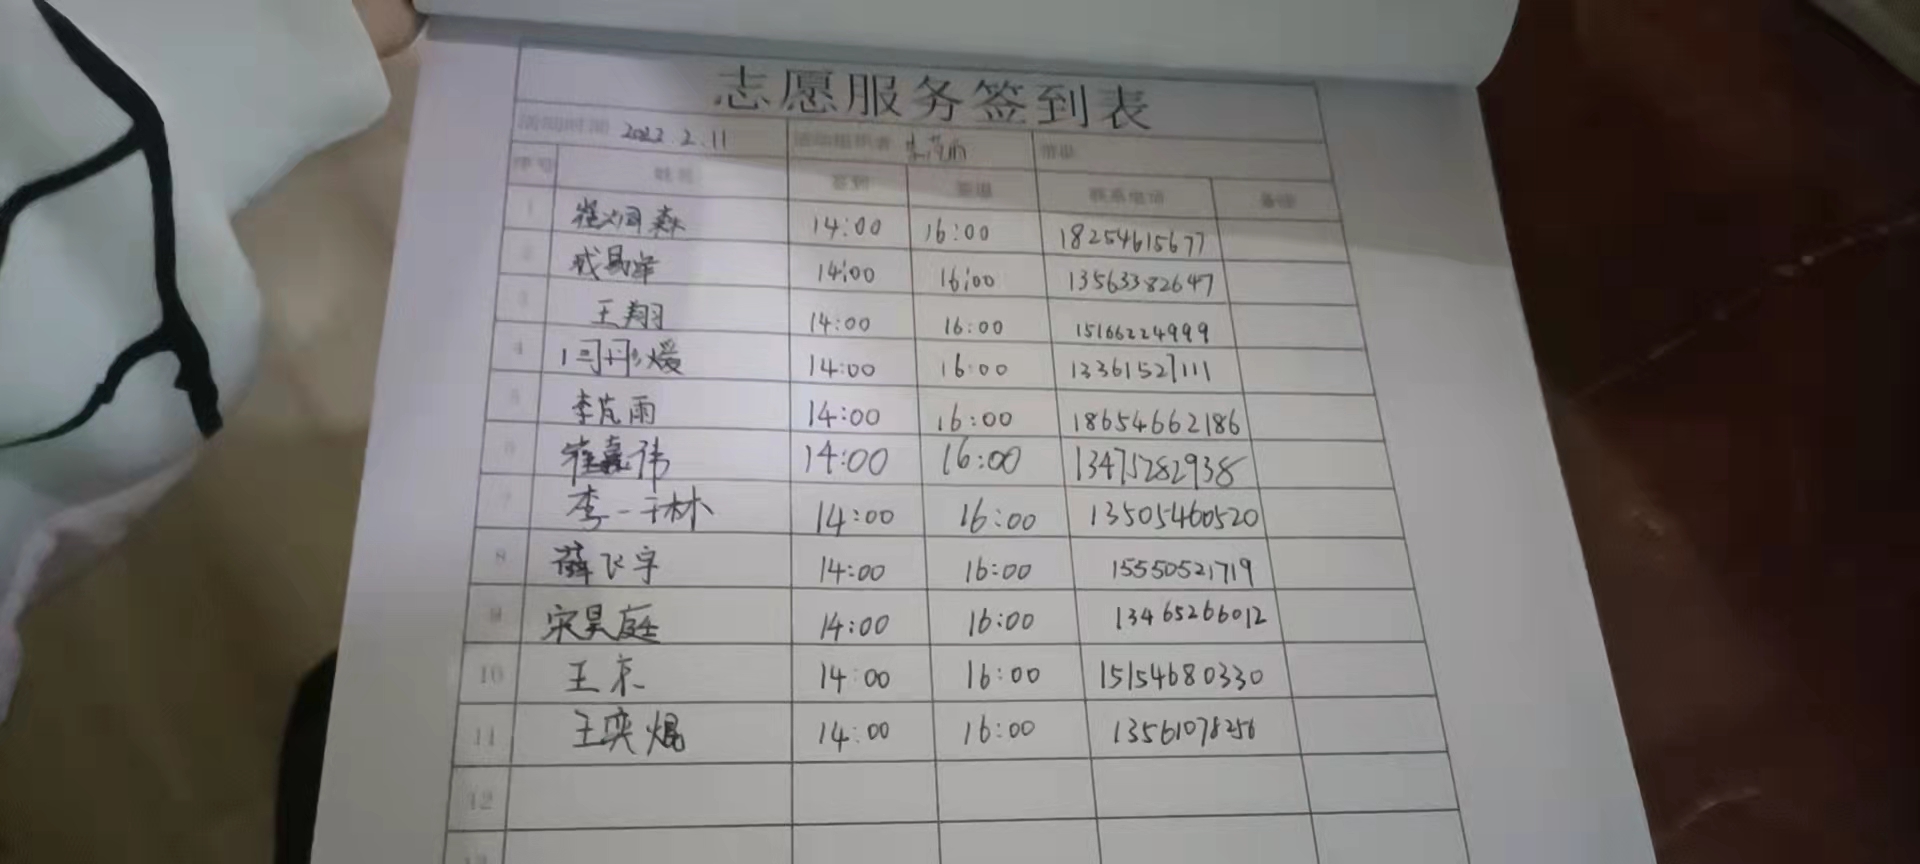 志愿服务签到表
活动时间 2022.2.11 活动组织者 李芃雨
序号 姓名 签到 签退 联系电话 备注
1 14:00 16:00 18254615677
2 14:00 16:00 13563382647
3 王翔 14:00 16:00 15166224999
4 闫丹彤煖 14:00 16:00 13361527111
5 李芃雨 14:00 16:00 18654662186
6 崔嘉伟 14:00 16:00 13475282938
7 李一千林 14:00 16:00 13505460520
8 薛飞宇 14:00 16:00 15550521719
9 宋昊庭 14:00 16:00 13465266012
10 王京 14:00 16:00 15154680330
11 王奕焜 14:00 16:00 13561078256
12